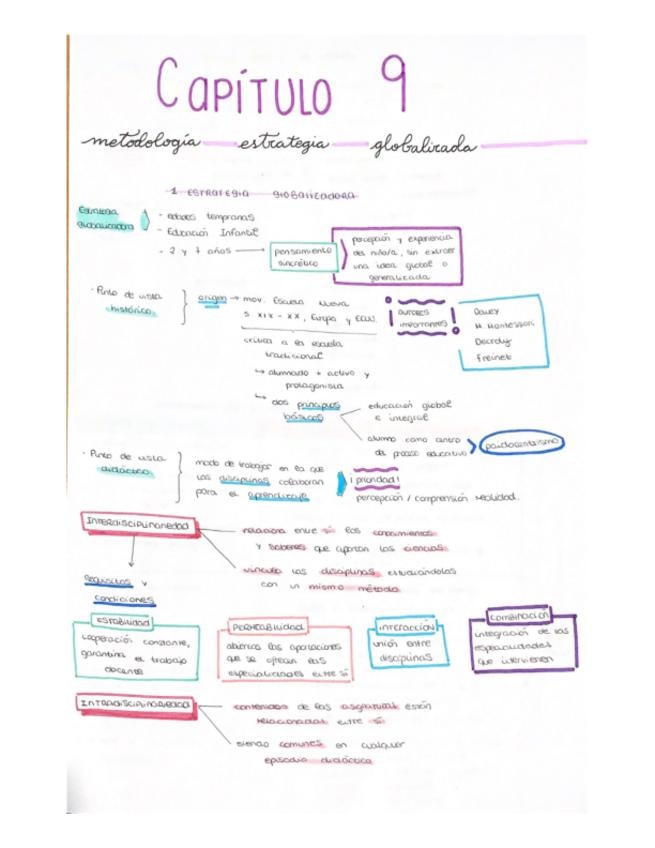 CAPÍTULO 9
metodología estrategia globalizada
1 ESTRATEGIA GLOBALIZADORA
Estrategia
globalizadora
- edades tempranas
- Educación Infantil
- 2 y 7 años → pensamiento
sincrético
percepción y experiencia
del niño/a, sin extraer
una idea global o
generalizada
· Punto de vista
histórico
origen → mov. Escuela Nueva
S. XIX - XX, Europa y EEUU.
crítica a la escuela
tradicional
↳ alumnado + activo y
protagonista
↳ dos principios
básicos
educación global
e integral
alumno como centro
del proceso educativo
paidocentrismo
! AUTORES
IMPORTANTES !
Dewey
M. Montessori
Decroly
Freinet
· Punto de vista
didáctico
modo de trabajar en la que
las disciplinas colaboran
para el aprendizaje
¡prioridad!
percepción / comprensión realidad.
INTERDISCIPLINARIEDAD
relaciona entre sí los conocimientos
y saberes que aportan las ciencias
vincula las disciplinas estudiándolas
con un mismo método
Requisitos y
condiciones
ESTABILIDAD
cooperación constante,
garantiza el trabajo
docente
PERMEABILIDAD
abiertas las aportaciones
que se ofrecen las
especialidades entre sí
INTERACCIÓN
unión entre
disciplinas
COMBINACIÓN
integración de las
especialidades
que intervienen
INTERDISCIPLINARIEDAD
contenidos de las asignaturas están
relacionados entre sí
siendo comunes en cualquier
episodio didáctico